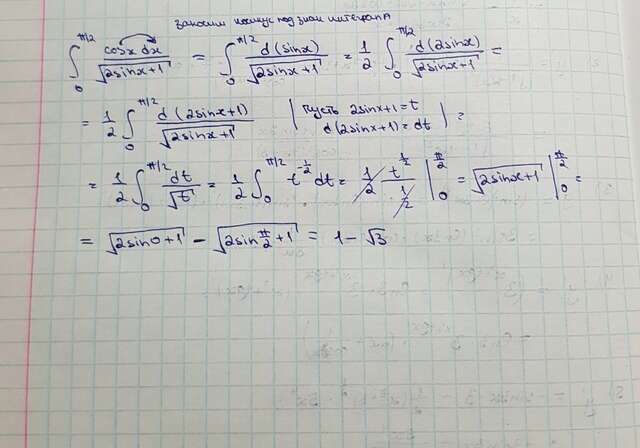 заносим косинус под знак интеграла
∫₀^{π/2} cosx dx / √(2sinx+1) = ∫₀^{π/2} d(sinx) / √(2sinx+1) = 1/2 ∫₀^{π/2} d(2sinx) / √(2sinx+1) =
= 1/2 ∫₀^{π/2} d(2sinx+1) / √(2sinx+1) | пусть 2sinx+1=t d(2sinx+1)=dt | =
= 1/2 ∫₀^{π/2} dt/√t = 1/2 ∫₀^{π/2} t^{-1/2} dt = 1/2 t^{1/2} / (1/2) |₀^{π/2} = √(2sinx+1) |₀^{π/2} =
= √(2sin0+1) - √(2sin π/2 +1) = 1-√3